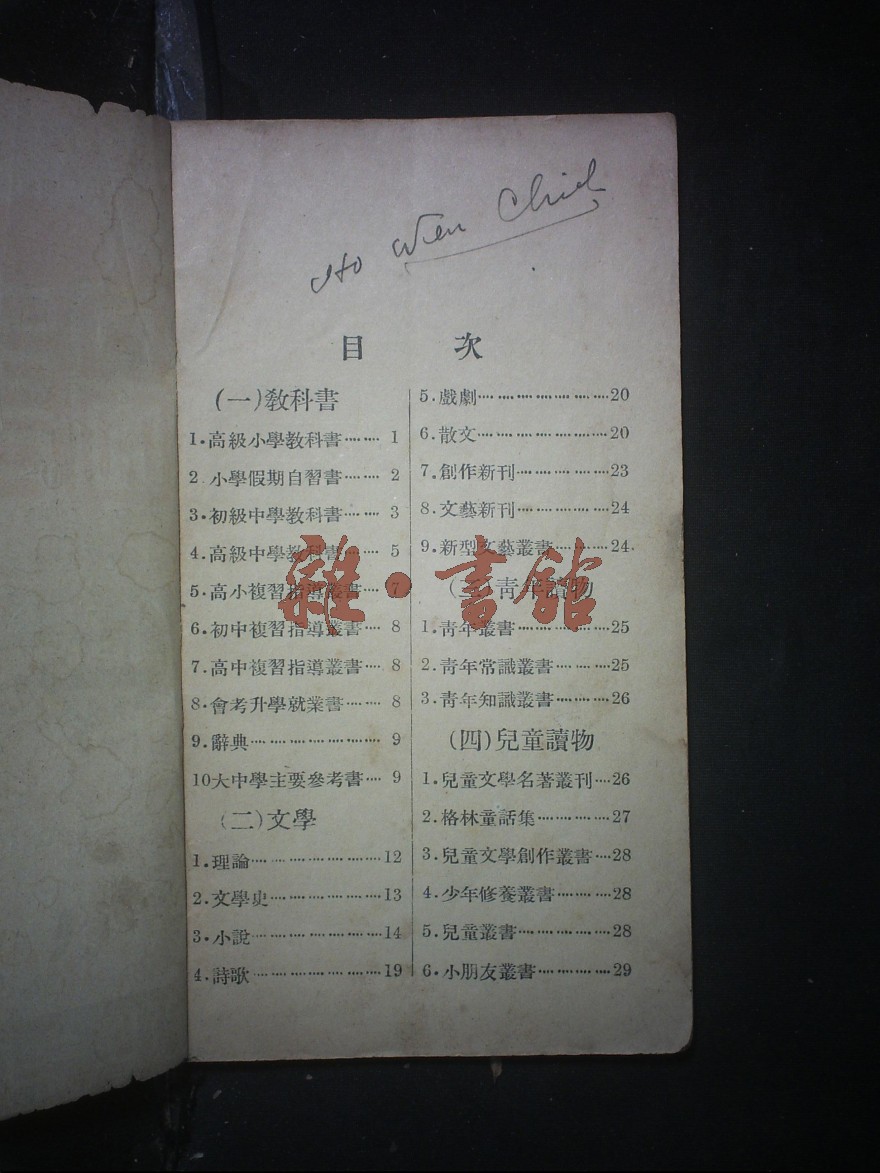 Ho Wen Chieh
目 次
(一)教科書
1.高級小學教科書……1
2 小學假期自習書……2
3.初級中學教科書……3
4.高級中學教科書……5
5.高小複習指導叢書……7
6.初中複習指導叢書…8
7.高中複習指導叢書…8
8.會考升學就業書……8
9.辭典…………………9
10大中學主要參考書…9
(二)文學
1.理論…………………12
2.文學史………………13
3.小說…………………14
4.詩歌…………………19
5.戲劇…………………20
6.散文…………………20
7.創作新刊……………23
8.文藝新刊……………24
9.新型文藝叢書………24
(三)青年讀物
1.青年叢書……………25
2.青年常識叢書………25
3.青年知識叢書………26
(四)兒童讀物
1.兒童文學名著叢刊…26
2.格林童話集…………27
3.兒童文學創作叢書…28
4.少年修養叢書………28
5.兒童叢書……………28
6.小朋友叢書…………29
雜·書館